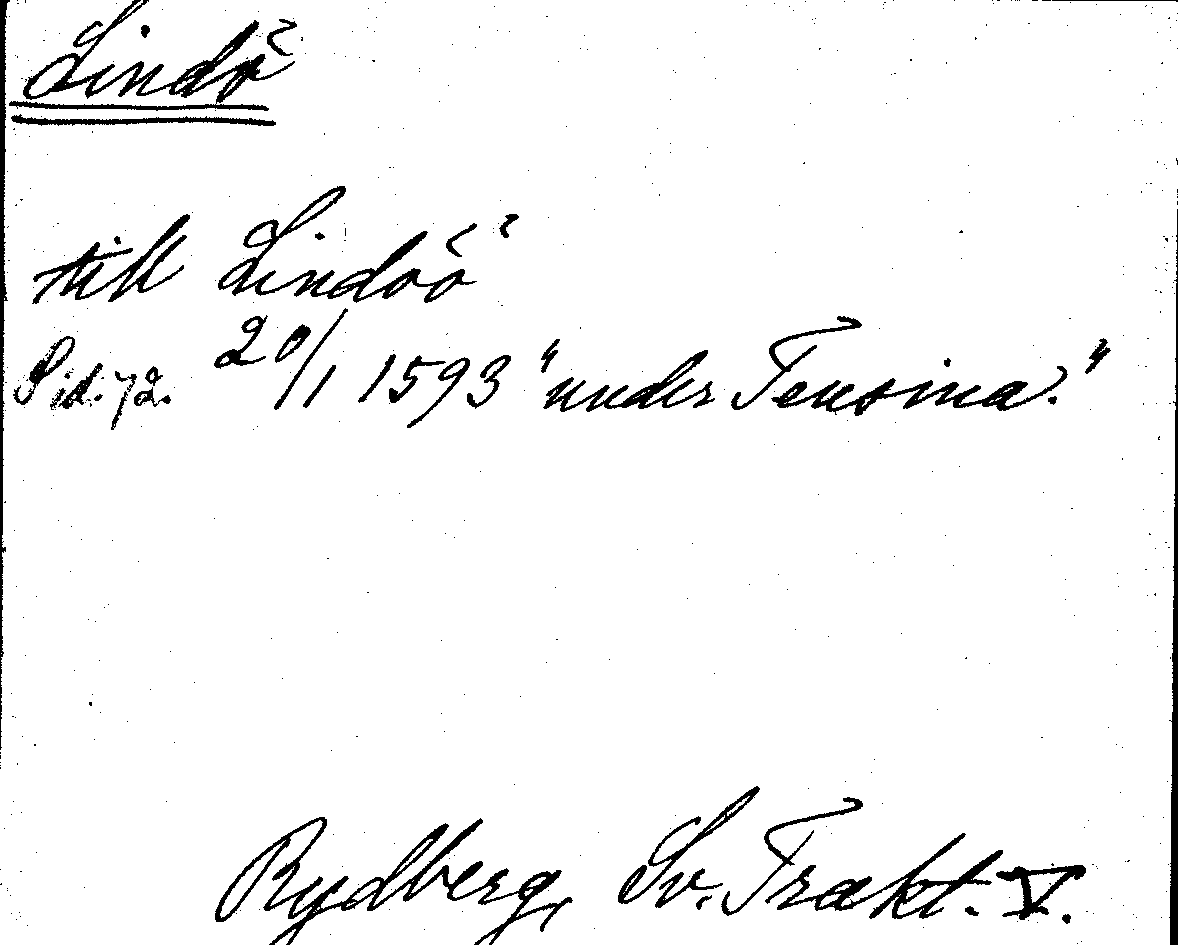 Lindö
till Lindöö
Sid. 72. 20/1 1593 "under Teusina."
Rydberg, Sv. Trakt. V.